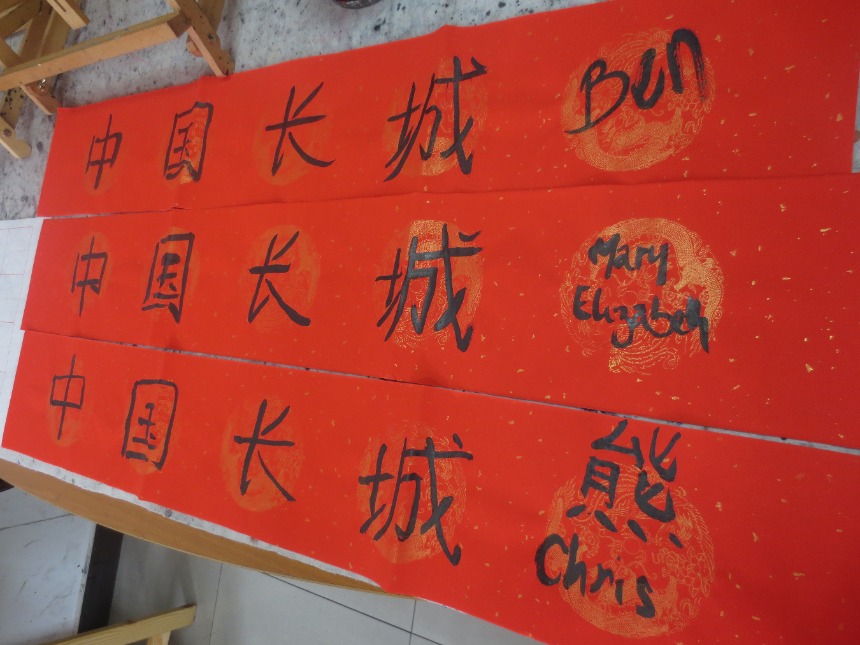 中国长城 Ben
中国长城 Mary
Elizabeth
中国长城 熊
Chris